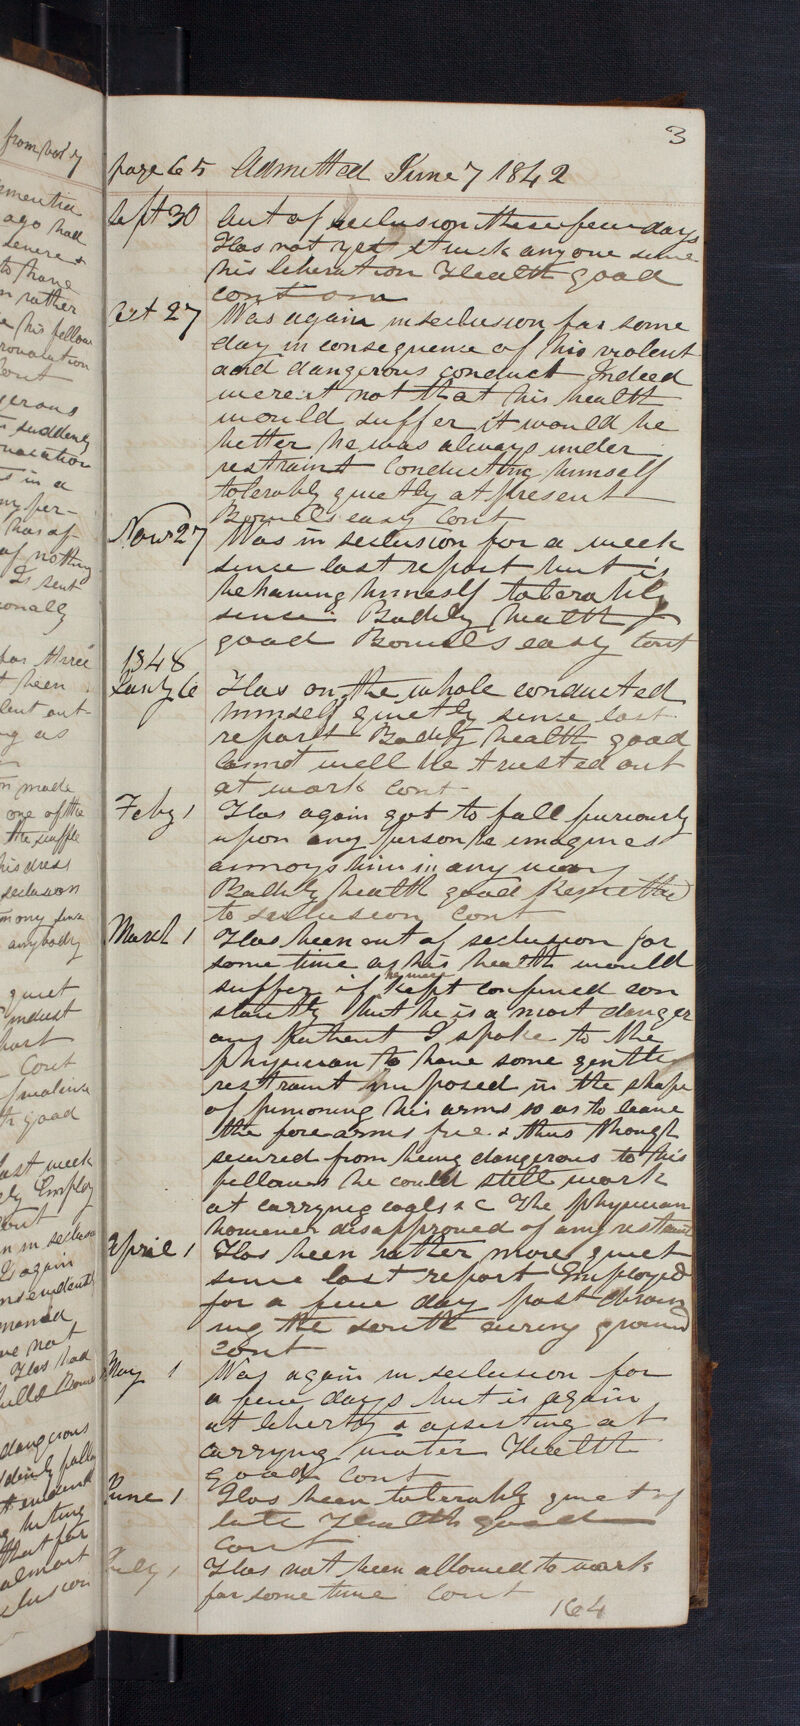 from vol 7
mentia
ago had
severe &
to have
rather
his fellow
provocation
Cont
gerous
suddenly
in a
has of
of nothing
Is sent
onally
for three
been
lent out
as
made
one of the
the scuffle
his dress
seclusion
any since
anybody
quiet
indust
Cont
good
last week
Employ
in seclusion
Is again
not
Has had
dangerous
almost
3
page 65 Admitted June 7 1842
Sept 30 Out of seclusion these few days
Has not yet struck any one since
his liberation Health good
cont
Oct 27 Was again in seclusion for some
day in consequence of his violent
and dangerous conduct Indeed
were it not that his health
would suffer it would be
better he was always under
restraint Conducting himself
tolerably quietly at present
Bowels easy Cont
Novr 27 Was in seclusion for a week
since last report but is
behaving himself tolerably
since Bodily health
good Bowels easy Cont
1848
Jany 6 Has on the whole conducted
himself quietly since last
report Bodily health good
Cannot well be trusted out
at work Cont
Feby 1 Has again got to fall furiously
upon any person he imagines
annoys him in any way
Bodily health good Remitted
to seclusion Cont
March 1 Has been out of seclusion for
some time as his health would
suffer if he were kept confined con
stantly but he is a most danger
ous patient I spoke to the
physician to have some gentle
restraint imposed in the shape
of pinioning his arms so as to leave
the fore arms free & thus though
secured from being dangerous to his
fellows he could still work
at carrying coals &c The physician
however disapproved of any restraint
April 1 Has been rather more quiet
since last report Employed
for a few day past
the south airing ground
Cont
May 1 Was again in seclusion for
a few days but is again
at liberty & assisting at
carrying water Health
good Cont
June 1 Has been tolerably quiet of
late Health good
Cont
July 1 Has not been allowed to work
for some time Cont
164